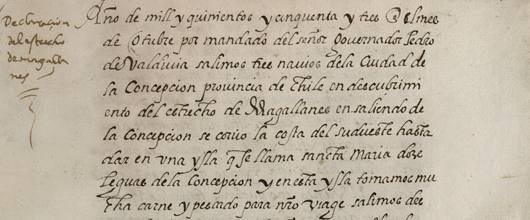 Declaracion
del estrecho
de magallan
nes
Año de mill y quinientos y cinquenta y tres @ el mes
de Otubre por mandado del señor Governador Pedro
de Valdivia salimos tres navios dela Ciudad de
la Concepcion provincia de Chile en descubrimi
ento del estrecho de Magallanes en saliendo de
la Concepcion se corrio la costa del sudueste hasta
dar en vna ysla q se llama sancta Maria doze
leguas de la Concepcion y en esta ysla tomamos mu
cha carne y pescado para nro viage salimos des